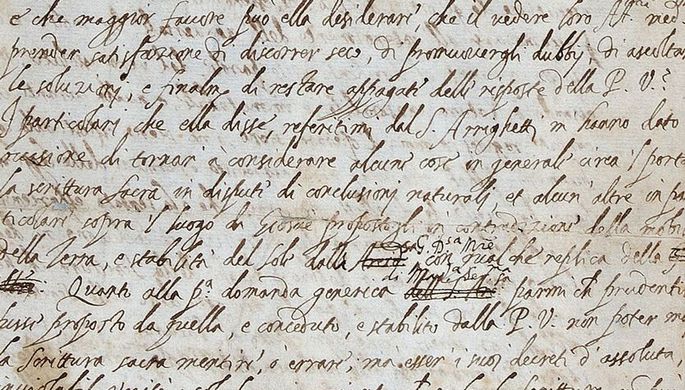 e che maggior favore può ella desiderare, che il vedere loro A^ze me
prender satisfazione di discorrer seco, di promuovergli dubbij, di ascolta
le soluzioni, e finalm^e di restare appagate delle risposte della P. V.^a
I particolari che ella disse, referitimi dal S. Arrighetti m hanno dato
casione di tornare à considerare alcune cose in generale circa 'l porta
la scrittura sacra in dispute di conclusioni naturali, et alcun' altre in pa
ticolare sopra il luogo di Giosuè propostogli in contradizione della mobi
della Terra, e stabilità del Sole dalla con qualche replica della
Quanto alla p^a domanda generica di Mad^a Ser^ma parmi ch prudenti
fusse proposto da quella, e conceduto, e stabilito dalla P. V. non poter m
la scrittura sacra mentire, ò errare; ma esser i suoi decreti d'assoluta,